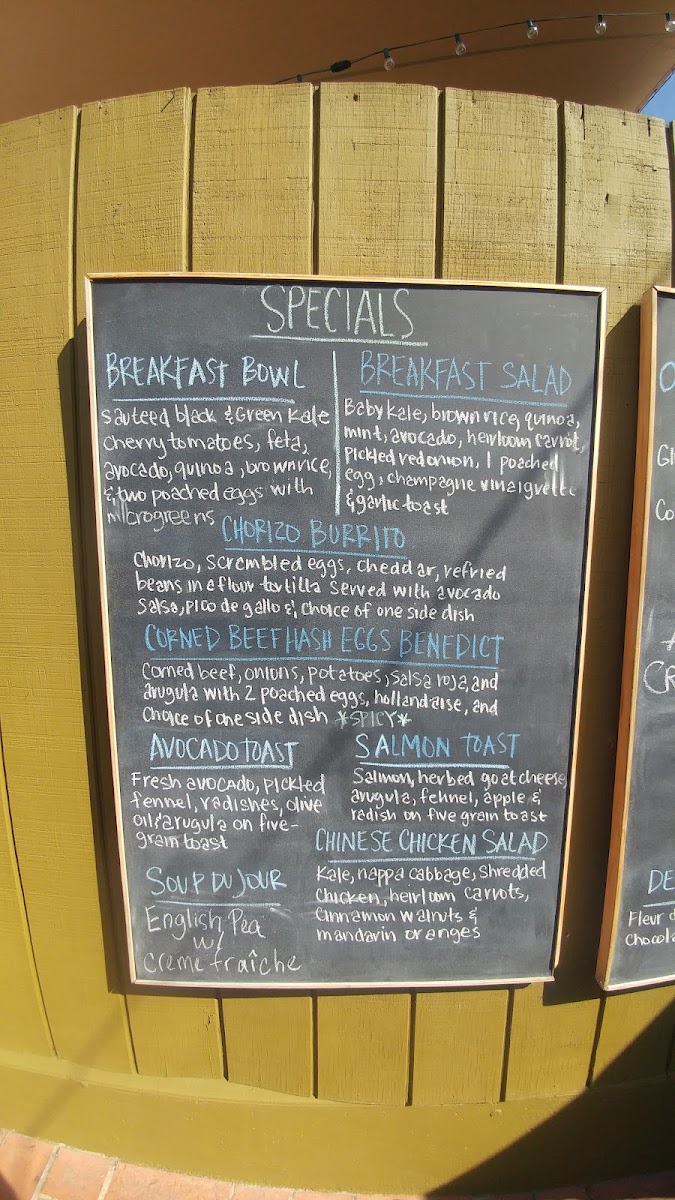 SPECIALS
BREAKFAST BOWL
sauteed black & Green Kale
cherry tomatoes, feta,
avocado, quinoa, brown rice,
& two poached eggs with
microgreens
BREAKFAST SALAD
Baby kale, brown rice, quinoa,
mint, avocado, heirloom carrot,
pickled red onion, 1 poached
egg, champagne vinaigrette
& garlic toast
CHORIZO BURRITO
Chorizo, scrembled eggs, cheddar, refried
beans in a flour tortilla served with avocado
salsa, pico de gallo & choice of one side dish
CORNED BEEF HASH EGGS BENEDICT
Corned beef, onions, potatoes, salsa roja, and
arugula with 2 poached eggs, hollandaise, and
choice of one side dish *SPICY*
AVOCADO TOAST
Fresh avocado, pickled
fennel, radishes, olive
oil & arugula on five-
grain toast
SALMON TOAST
Salmon, herbed goat cheese,
arugula, fennel, apple &
radish on five grain toast
CHINESE CHICKEN SALAD
Kale, nappa cabbage, shredded
chicken, heirloom carrots,
cinnamon walnuts &
mandarin oranges
SOUP DU JOUR
English Pea
w/
creme fraîche
O
GI
Co
CR
DE
Fleur d
Chocola